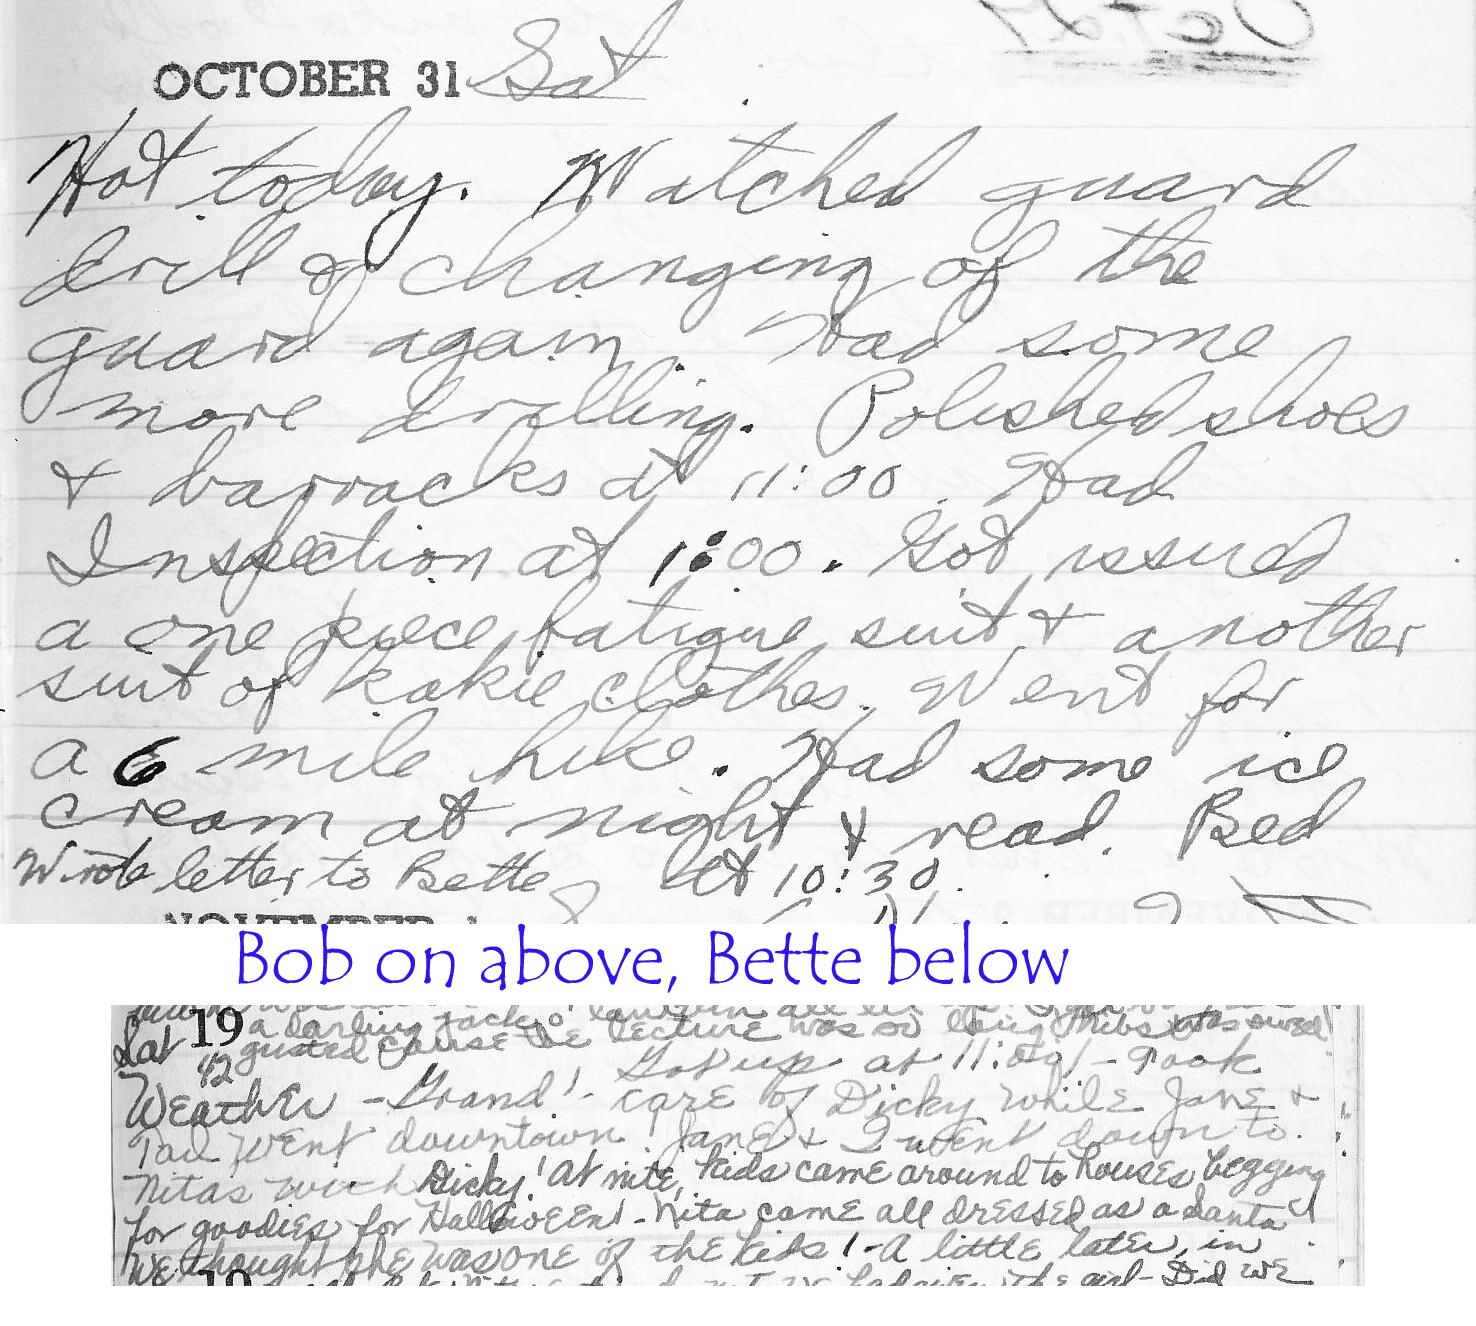 Oct. 27
OCTOBER 31 Sat
Hot today. Watched guard
drill & changing of the
guard again. Had some
more drilling. Polished shoes
& barracks at 11:00. Had
Inspection at 1:00. Got issued
a one piece fatigue suit & another
suit of kakie clothes. Went for
a 6 mile hike. Had some ice
cream at night & read. Bed
Wrote letter to Bette at 10:30.
NOVEMBER 1
Bob on above, Bette below
a darling jack o' lantern all lit
Sat 19 gusted cause the lecture was so long
42 Got up at 11:00! - Took
Weather - Grand! - care of Dicky while Jane &
Tad went downtown! Jane & I went down to
Nitas with Dicky! At nite, kids came around to houses begging
for goodies for Halloween! - Nita came all dressed as a Santa
We thought she was one of the kids! - A little later, in
19 the girl - Did we